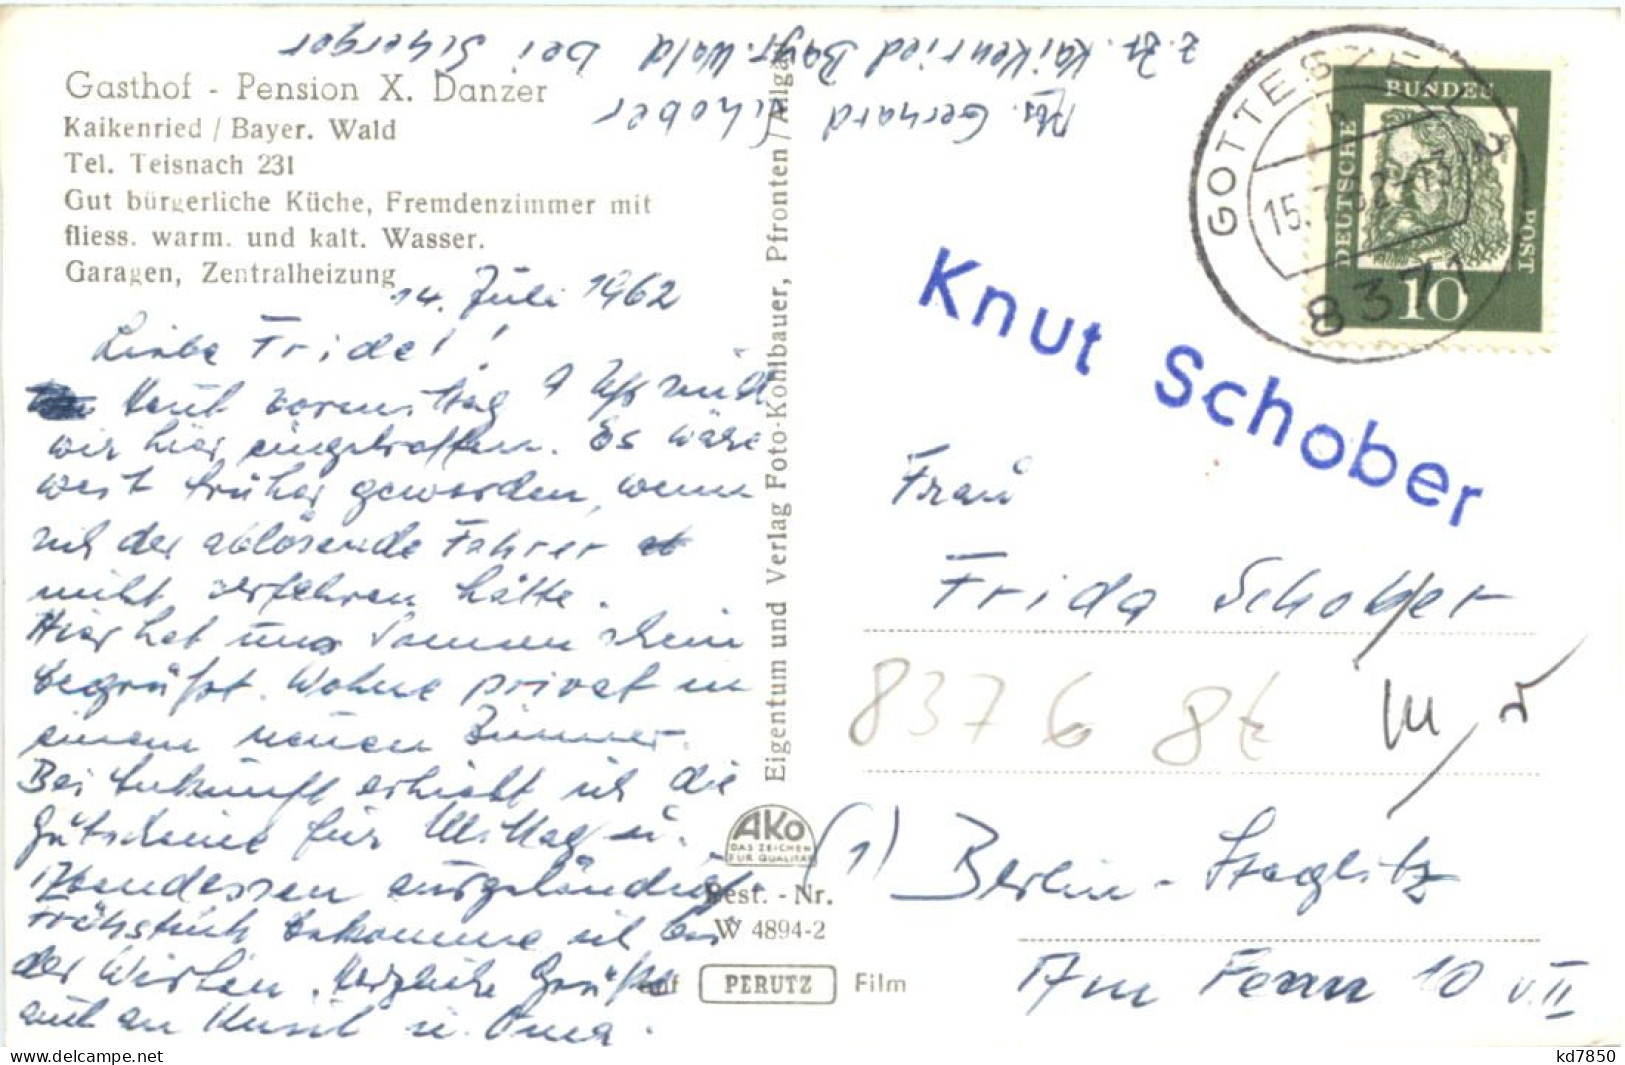 Gasthof - Pension X. Danzer
Kaikenried / Bayer. Wald
Tel. Teisnach 231
Gut bürgerliche Küche, Fremdenzimmer mit
fliess. warm. und kalt. Wasser.
Garagen, Zentralheizung
14. Juli 1962
Liebe Fride!
Heut vormittag 9 Uhr sind
wir hier eingetroffen. Es wäre
weit früher geworden, wenn
sich der ablösende Fahrer
nicht verfahren hätte.
Hier hat uns Sonnenschein
begrüßt. Wohne privat in
einem neuen Zimmer.
Bei Ankunft erhielt ich die
Gutscheine für Mittag u.
Abendessen ausgehändigt
Frühstück bekomme ich bei
der Wirtin. Herzliche Grüße
auch an Knut u. Oma.
z. Zt. Kaikenried Bayr. Wald bei
Abs. Gerhard Schober
Eigentum und Verlag Foto-Kohlbauer, Pfronten / Allgäu
AKO
DAS ZEICHEN
FÜR QUALITÄT
Best. - Nr.
W 4894-2
auf PERUTZ Film
GOTTESZELL 2
h
15. 7. 62 - 13
8371
DEUTSCHE
BUNDES
POST
10
Knut Schober
Frau
Frida Schober
837 6 8€
(1) Berlin - Steglitz
Am Fenn 10 v. II
kd7850